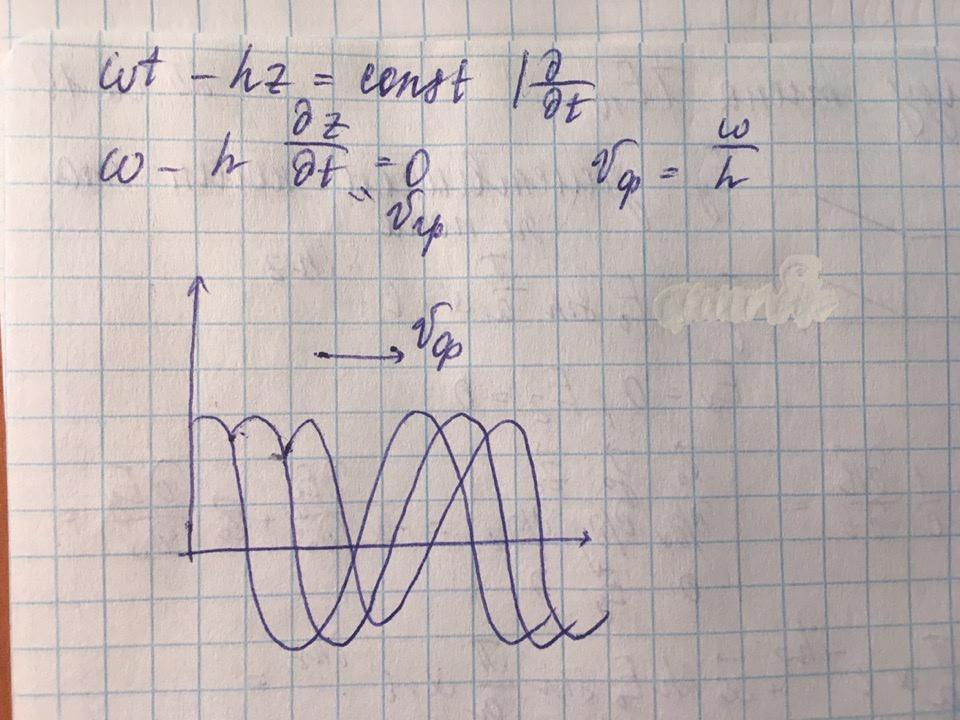 ωt − hz = const | ∂/∂t
ω − h ∂z/∂t = 0 vф = ω/h
" vф
vф